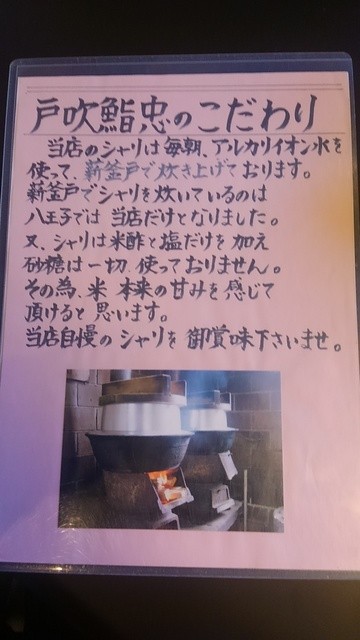 戸吹鮨忠のこだわり
当店のシャリは毎朝、アルカリイオン水を
使って、薪釜戸で炊き上げております。
薪釜戸でシャリを炊いているのは
八王子では 当店だけとなりました。
又、シャリは米酢と塩だけを加え
砂糖は一切、使っておりません。
その為、米 本来の甘みを感じて
頂けると 思います。
当店自慢の シャリを 御賞味下さいませ。